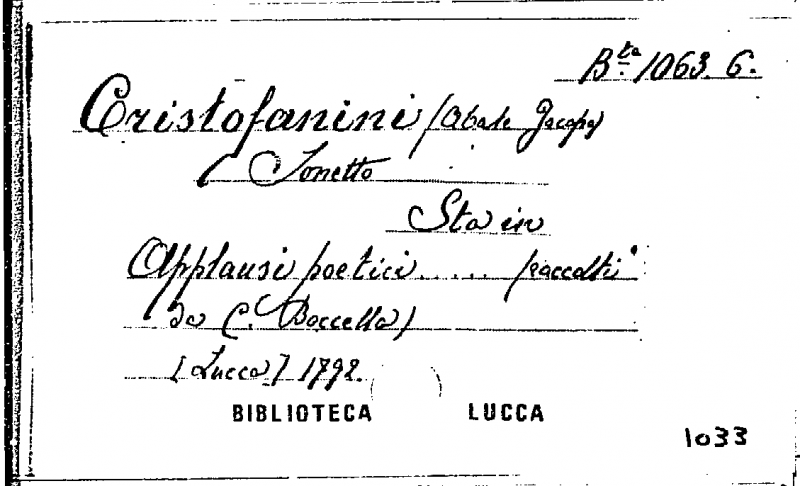 B.ta 1063. 6.
Cristofanini (Abate Jacopo)
Sonetto
Sta in
Applausi poetici ..... (raccolti
da C. Boccella)
[Lucca] 1792.
BIBLIOTECA LUCCA
1033